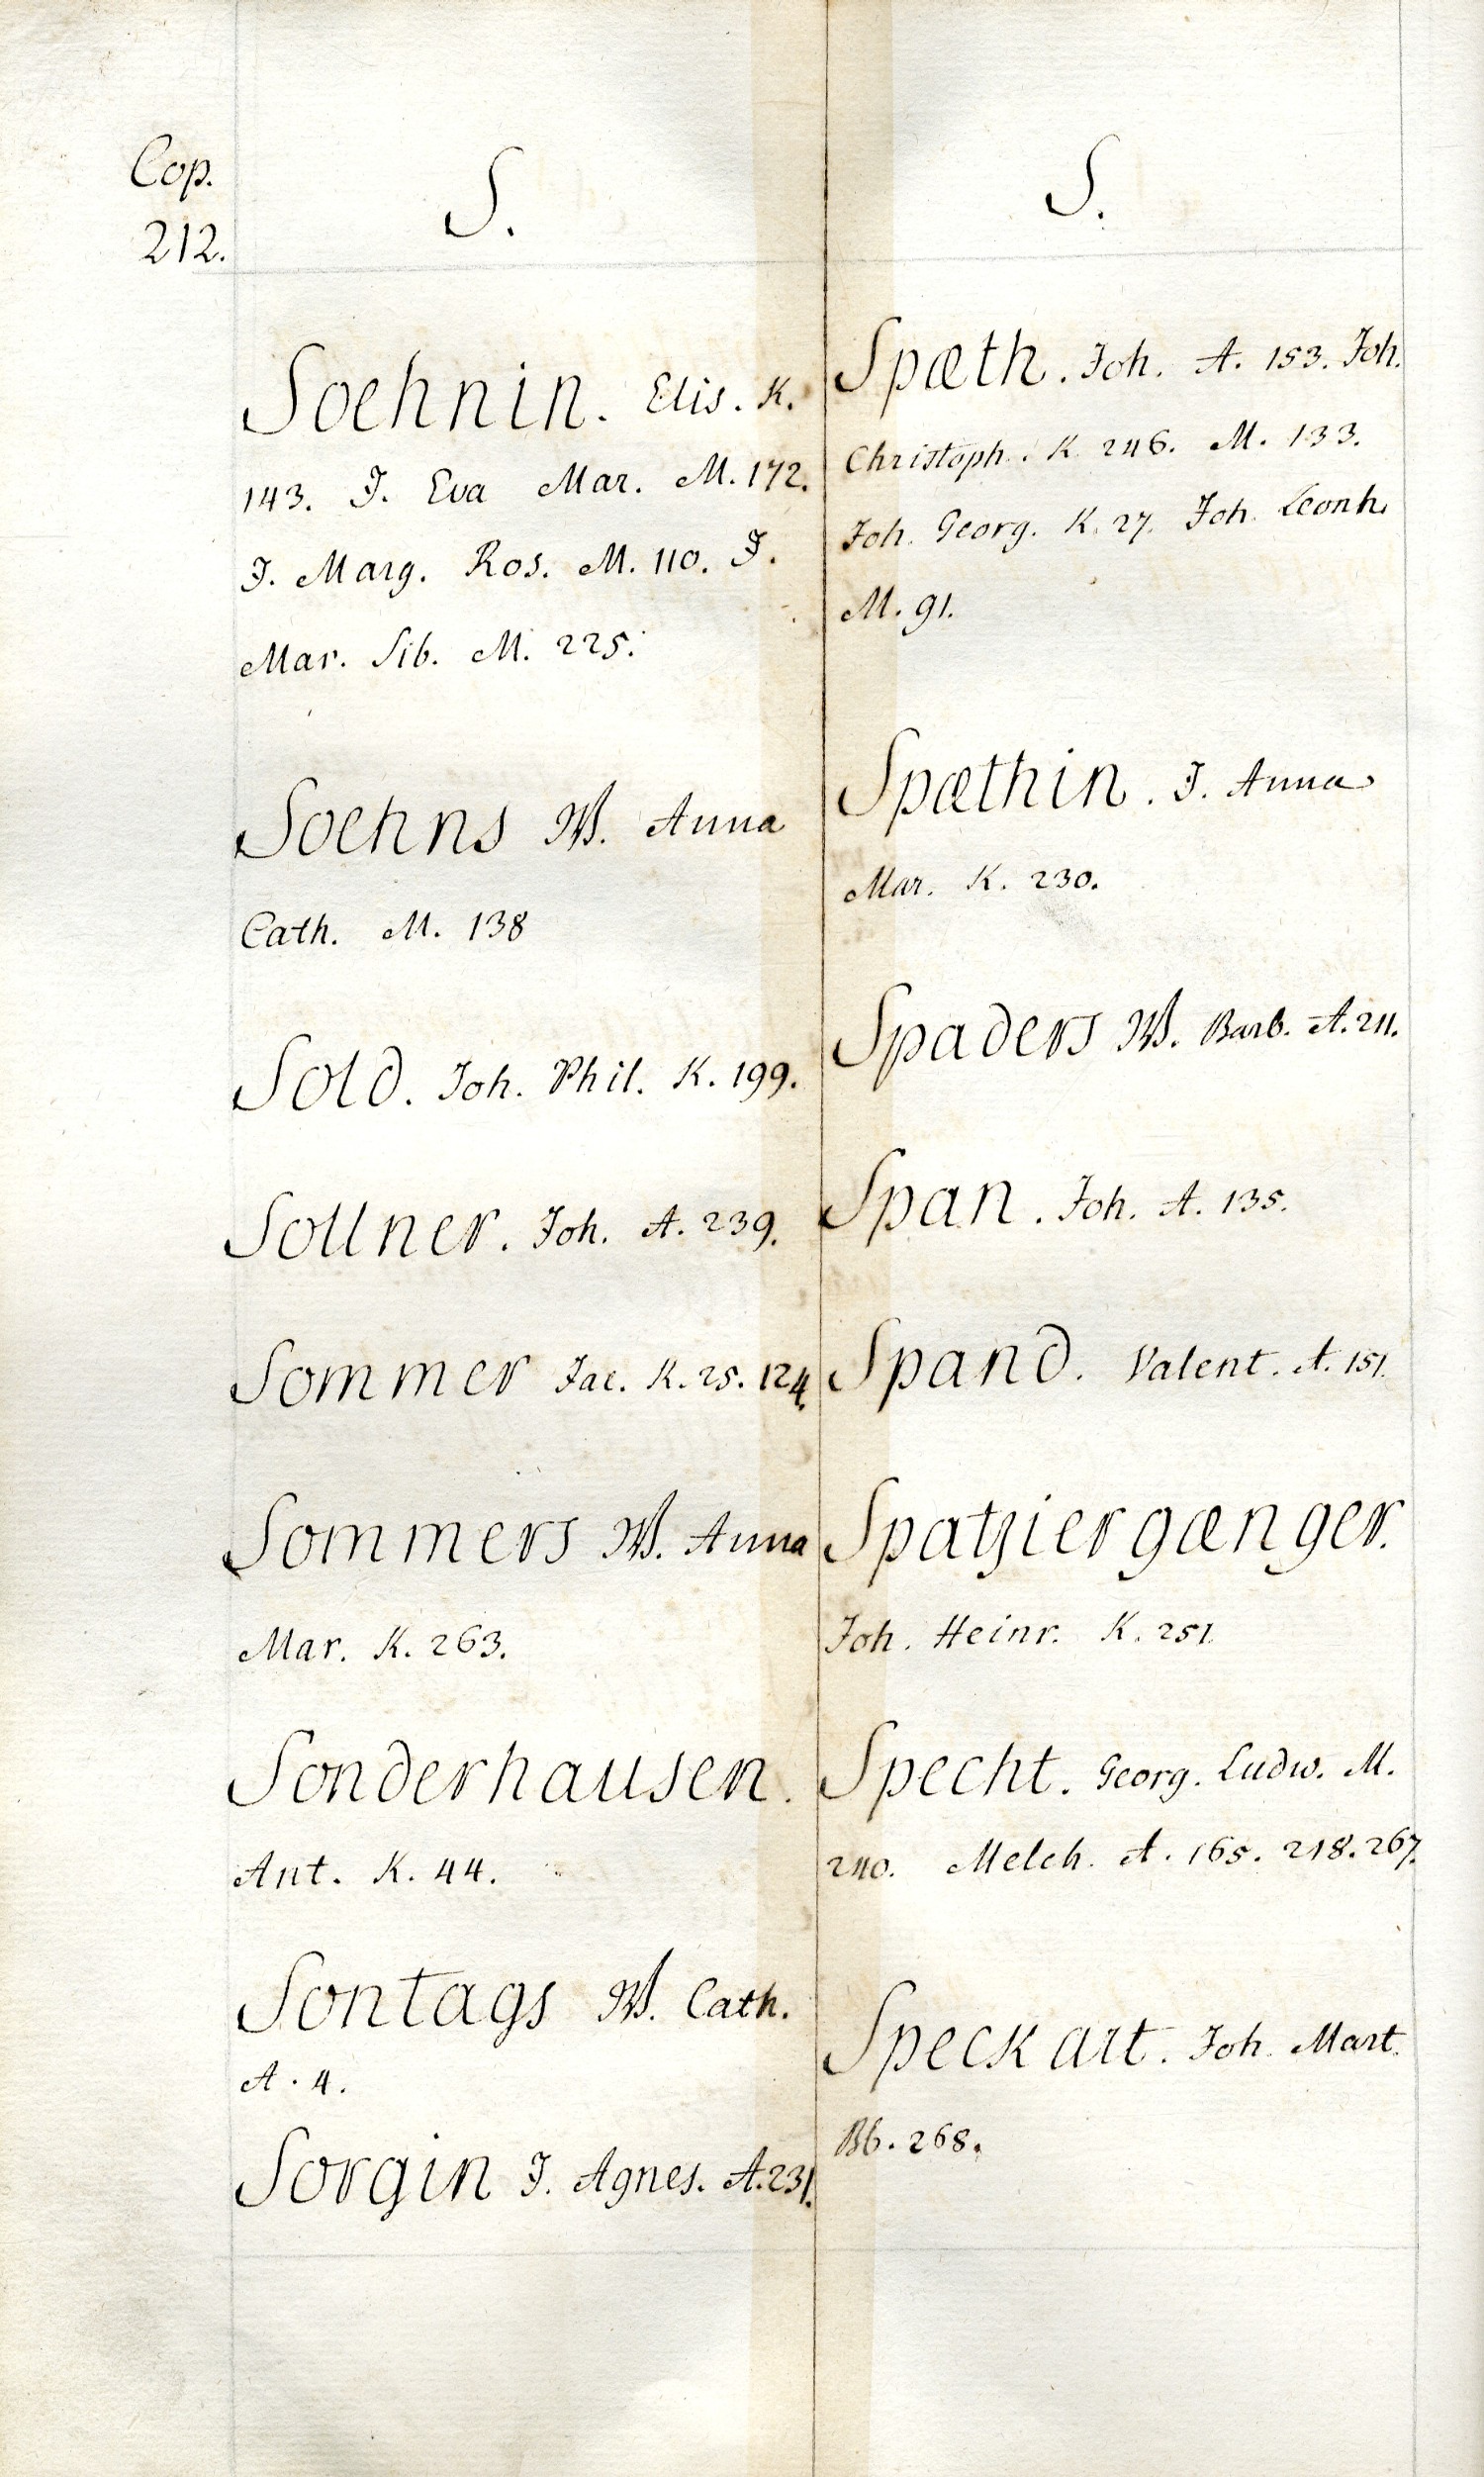 Cop.
212.
S.
Soehnin. Elis. K.
143. J. Eva Mar. M. 172.
J. Marg. Ros. M. 110. J.
Mar. Sib. M. 225.
Soehns W. Anna
Cath. M. 138
Sold. Joh. Phil. K. 199.
Sollner. Joh. A. 239.
Sommer Jac. K. 25. 124.
Sommers W. Anna
Mar. K. 263.
Sonderhausen.
Ant. K. 44.
Sontags W. Cath.
A. 4.
Sorgin J. Agnes. A. 231.
S.
Spæth. Joh. A. 153. Joh.
Christoph. K 246. M. 133.
Joh. Georg. K. 27. Joh. Leonh.
M. 91.
Spæthin. J. Anna
Mar. K. 230.
Spaders W. Barb. A. 211.
Span. Joh. A. 135.
Spand. Valent. A. 151.
Spatziergænger.
Joh. Heinr. K. 251.
Specht. Georg. Ludw. M.
240. Melch. A. 165. 218. 267.
Speckart. Joh. Mart.
Bb. 268.